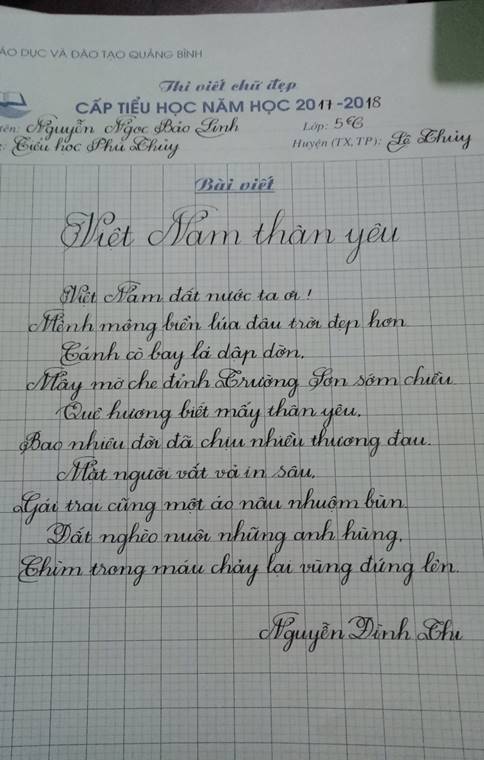 ÁO DỤC VÀ ĐÀO TẠO QUẢNG BÌNH
Thi viết chữ đẹp
CẤP TIỂU HỌC NĂM HỌC 2017-2018
tên: Nguyễn Ngọc Bảo Linh Lớp: 5
: Tiểu học Phú Thủy Huyện (TX, TP): Lệ Thủy
Bài viết
Việt Nam thân yêu
Việt Nam đất nước ta ơi!
Mênh mông biển lúa đâu trời đẹp hơn
Cánh cò bay lả dập dờn,
Mây mờ che đỉnh Trường Sơn sớm chiều
Quê hương biết mấy thân yêu,
Bao nhiêu đời đã chịu nhiều thương đau.
Mặt người vất vả in sâu,
Gái trai cũng một áo nâu nhuộm bùn
Đất nghèo nuôi những anh hùng,
Chìm trong máu chảy lại vùng đứng lên.
Nguyễn Đình Thi